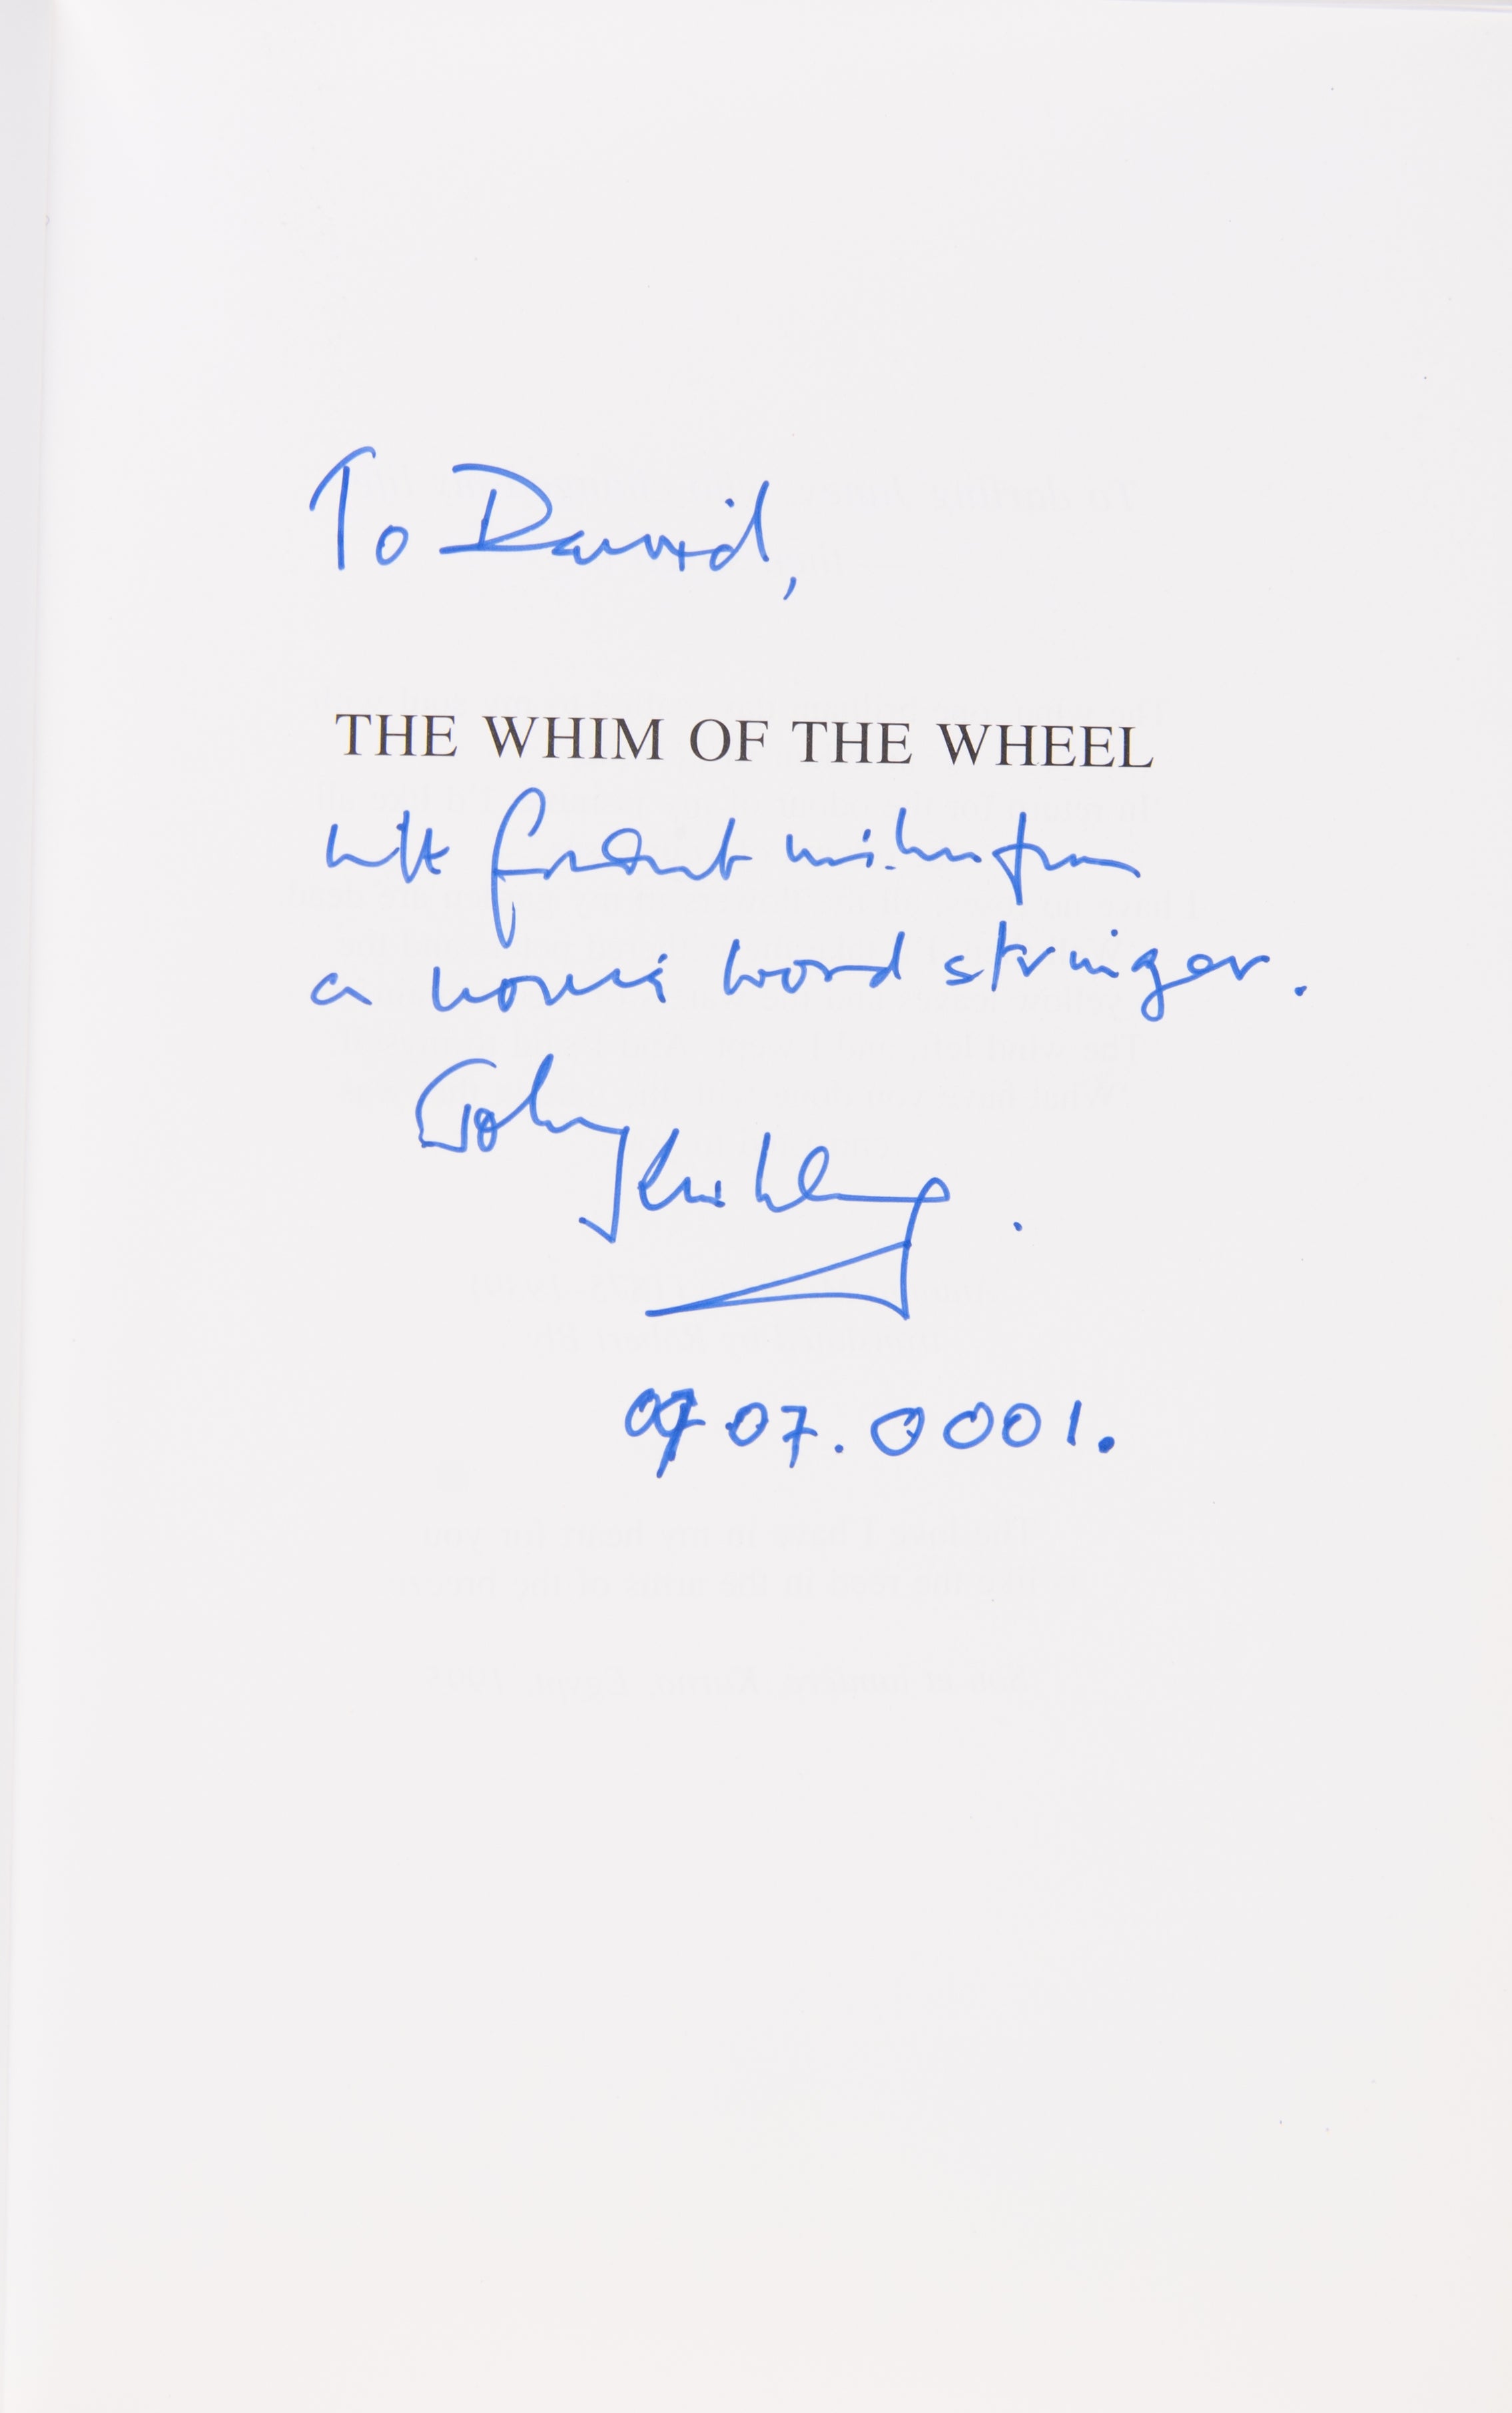 To David,
THE WHIM OF THE WHEEL
with fondest wishes from
a novice word stringer.
John
07.07.0001.